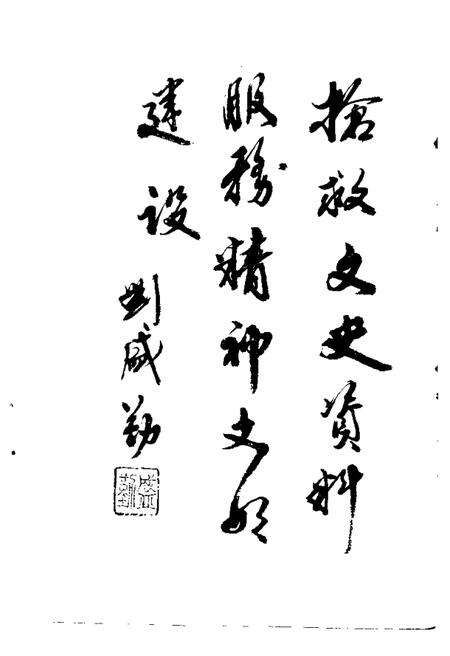 搶救文史資料
服務精神文明
建設
劉盛勤